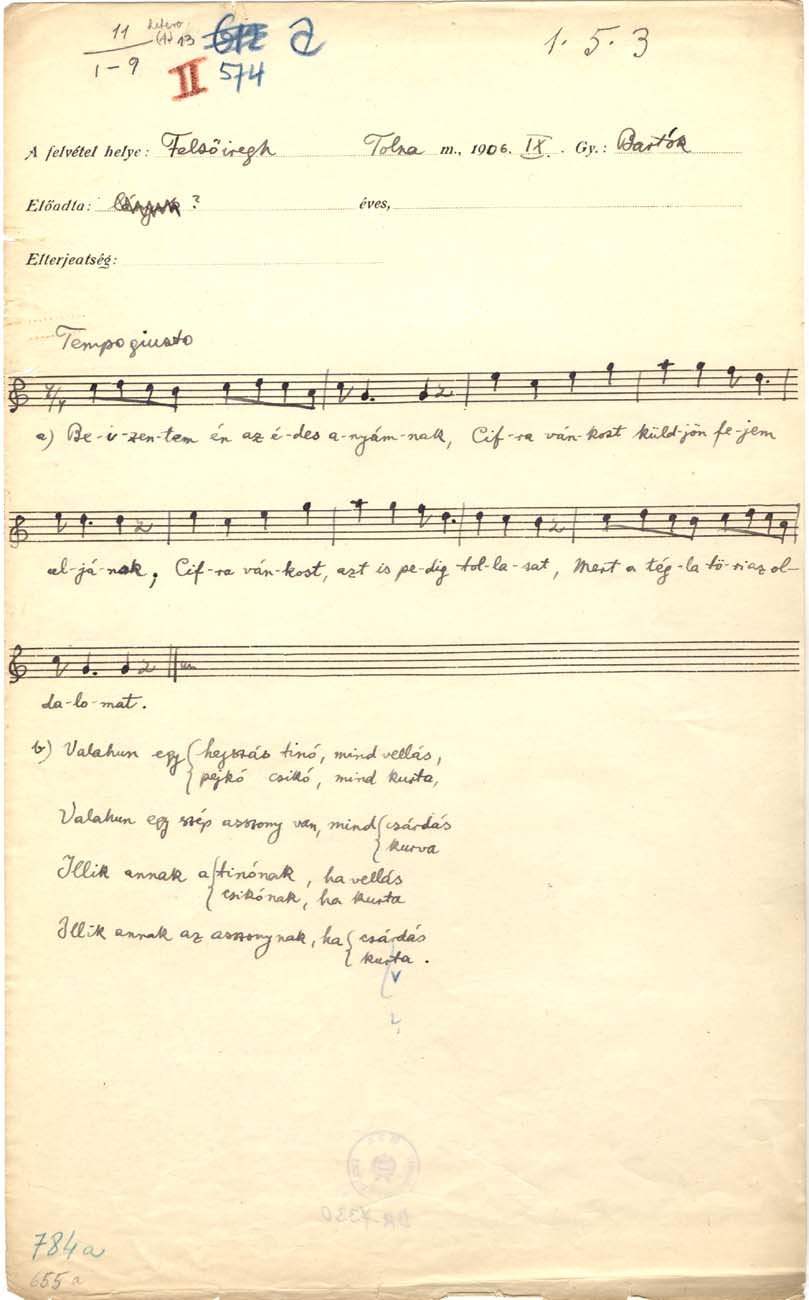 11
1-9
13
II 574
1. 5. 3
A felvétel helye: Felsőiregh Tolna m., 1906. IX. Gy.: Bartók
Előadta: ? éves,
Elterjeatség:
Tempo giusto
a) Be-i-zen-tem én az é-des a-nyám-nak, Cif-ra ván-kost küld-jön fe-jem
al-já-nak; Cif-ra ván-kost, azt is pe-dig tol-la-sat, Mert a tég-la tö-ri az ol-
da-lo-mat.
b) Valahun egy { hejszás tinó, mind vellás,
pejkó csikó, mind kurta,
Valahun egy szép asszony van, mind { csárdás
kurva
Illik annak a { tinónak, ha vellás
csikónak, ha kurta
Illik annak az asszonynak, ha { csárdás
kurta.
v
784a
655a